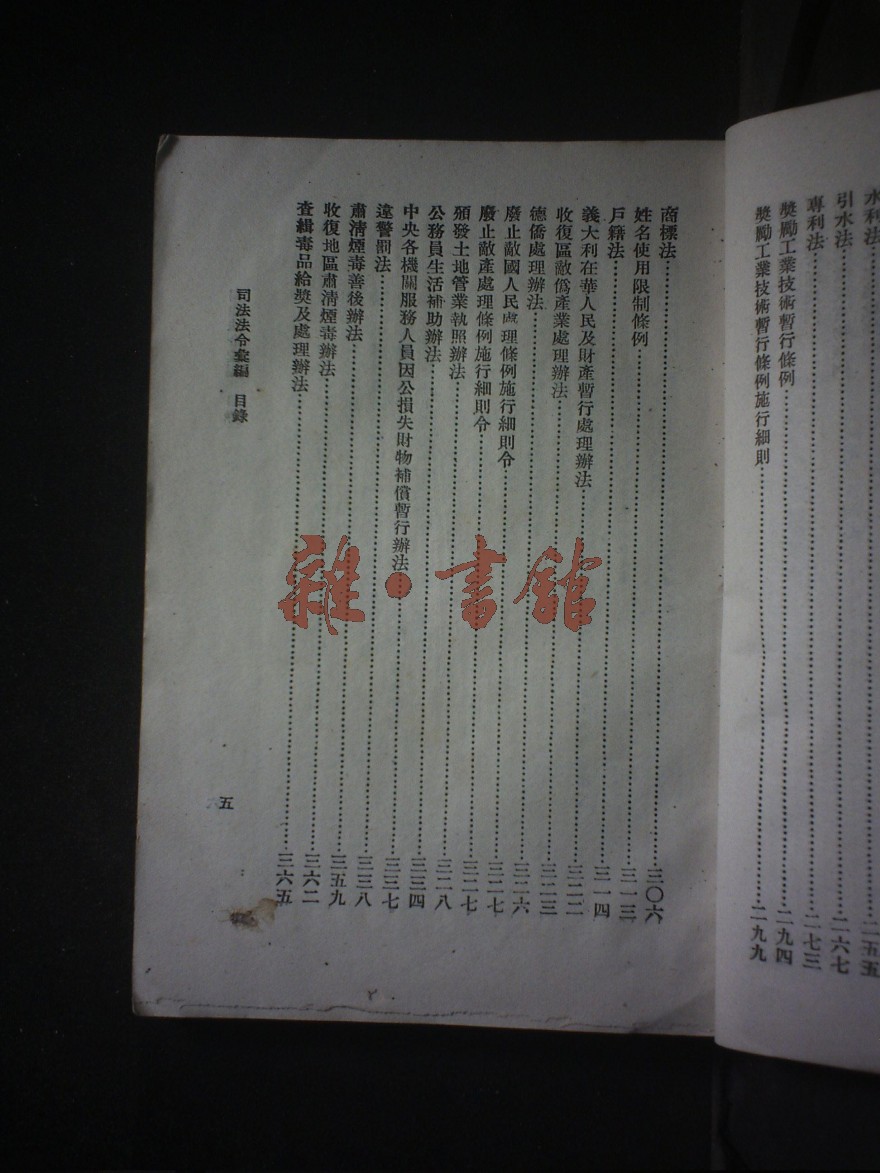 水利法……二五五
引水法……二六七
專利法……二七三
獎勵工業技術暫行條例……二九四
獎勵工業技術暫行條例施行細則……二九九
商標法……三〇六
姓名使用限制條例……三一三
戶籍法……三一四
義大利在華人民及財產暫行處理辦法……三二二
收復區敵偽產業處理辦法……三二三
德僑處理辦法……三二六
廢止敵國人民處理條例施行細則令……三二七
廢止敵產處理條例施行細則令……三二七
頒發土地管業執照辦法……三二八
公務員生活補助辦法……三三四
中央各機關服務人員因公損失財物補償暫行辦法……三三七
違警罰法……三三八
肅清煙毒善後辦法……三五九
收復地區肅清煙毒辦法……三六二
查緝毒品給獎及處理辦法……三六五
司法法令彙編 目錄
五
雜·書館